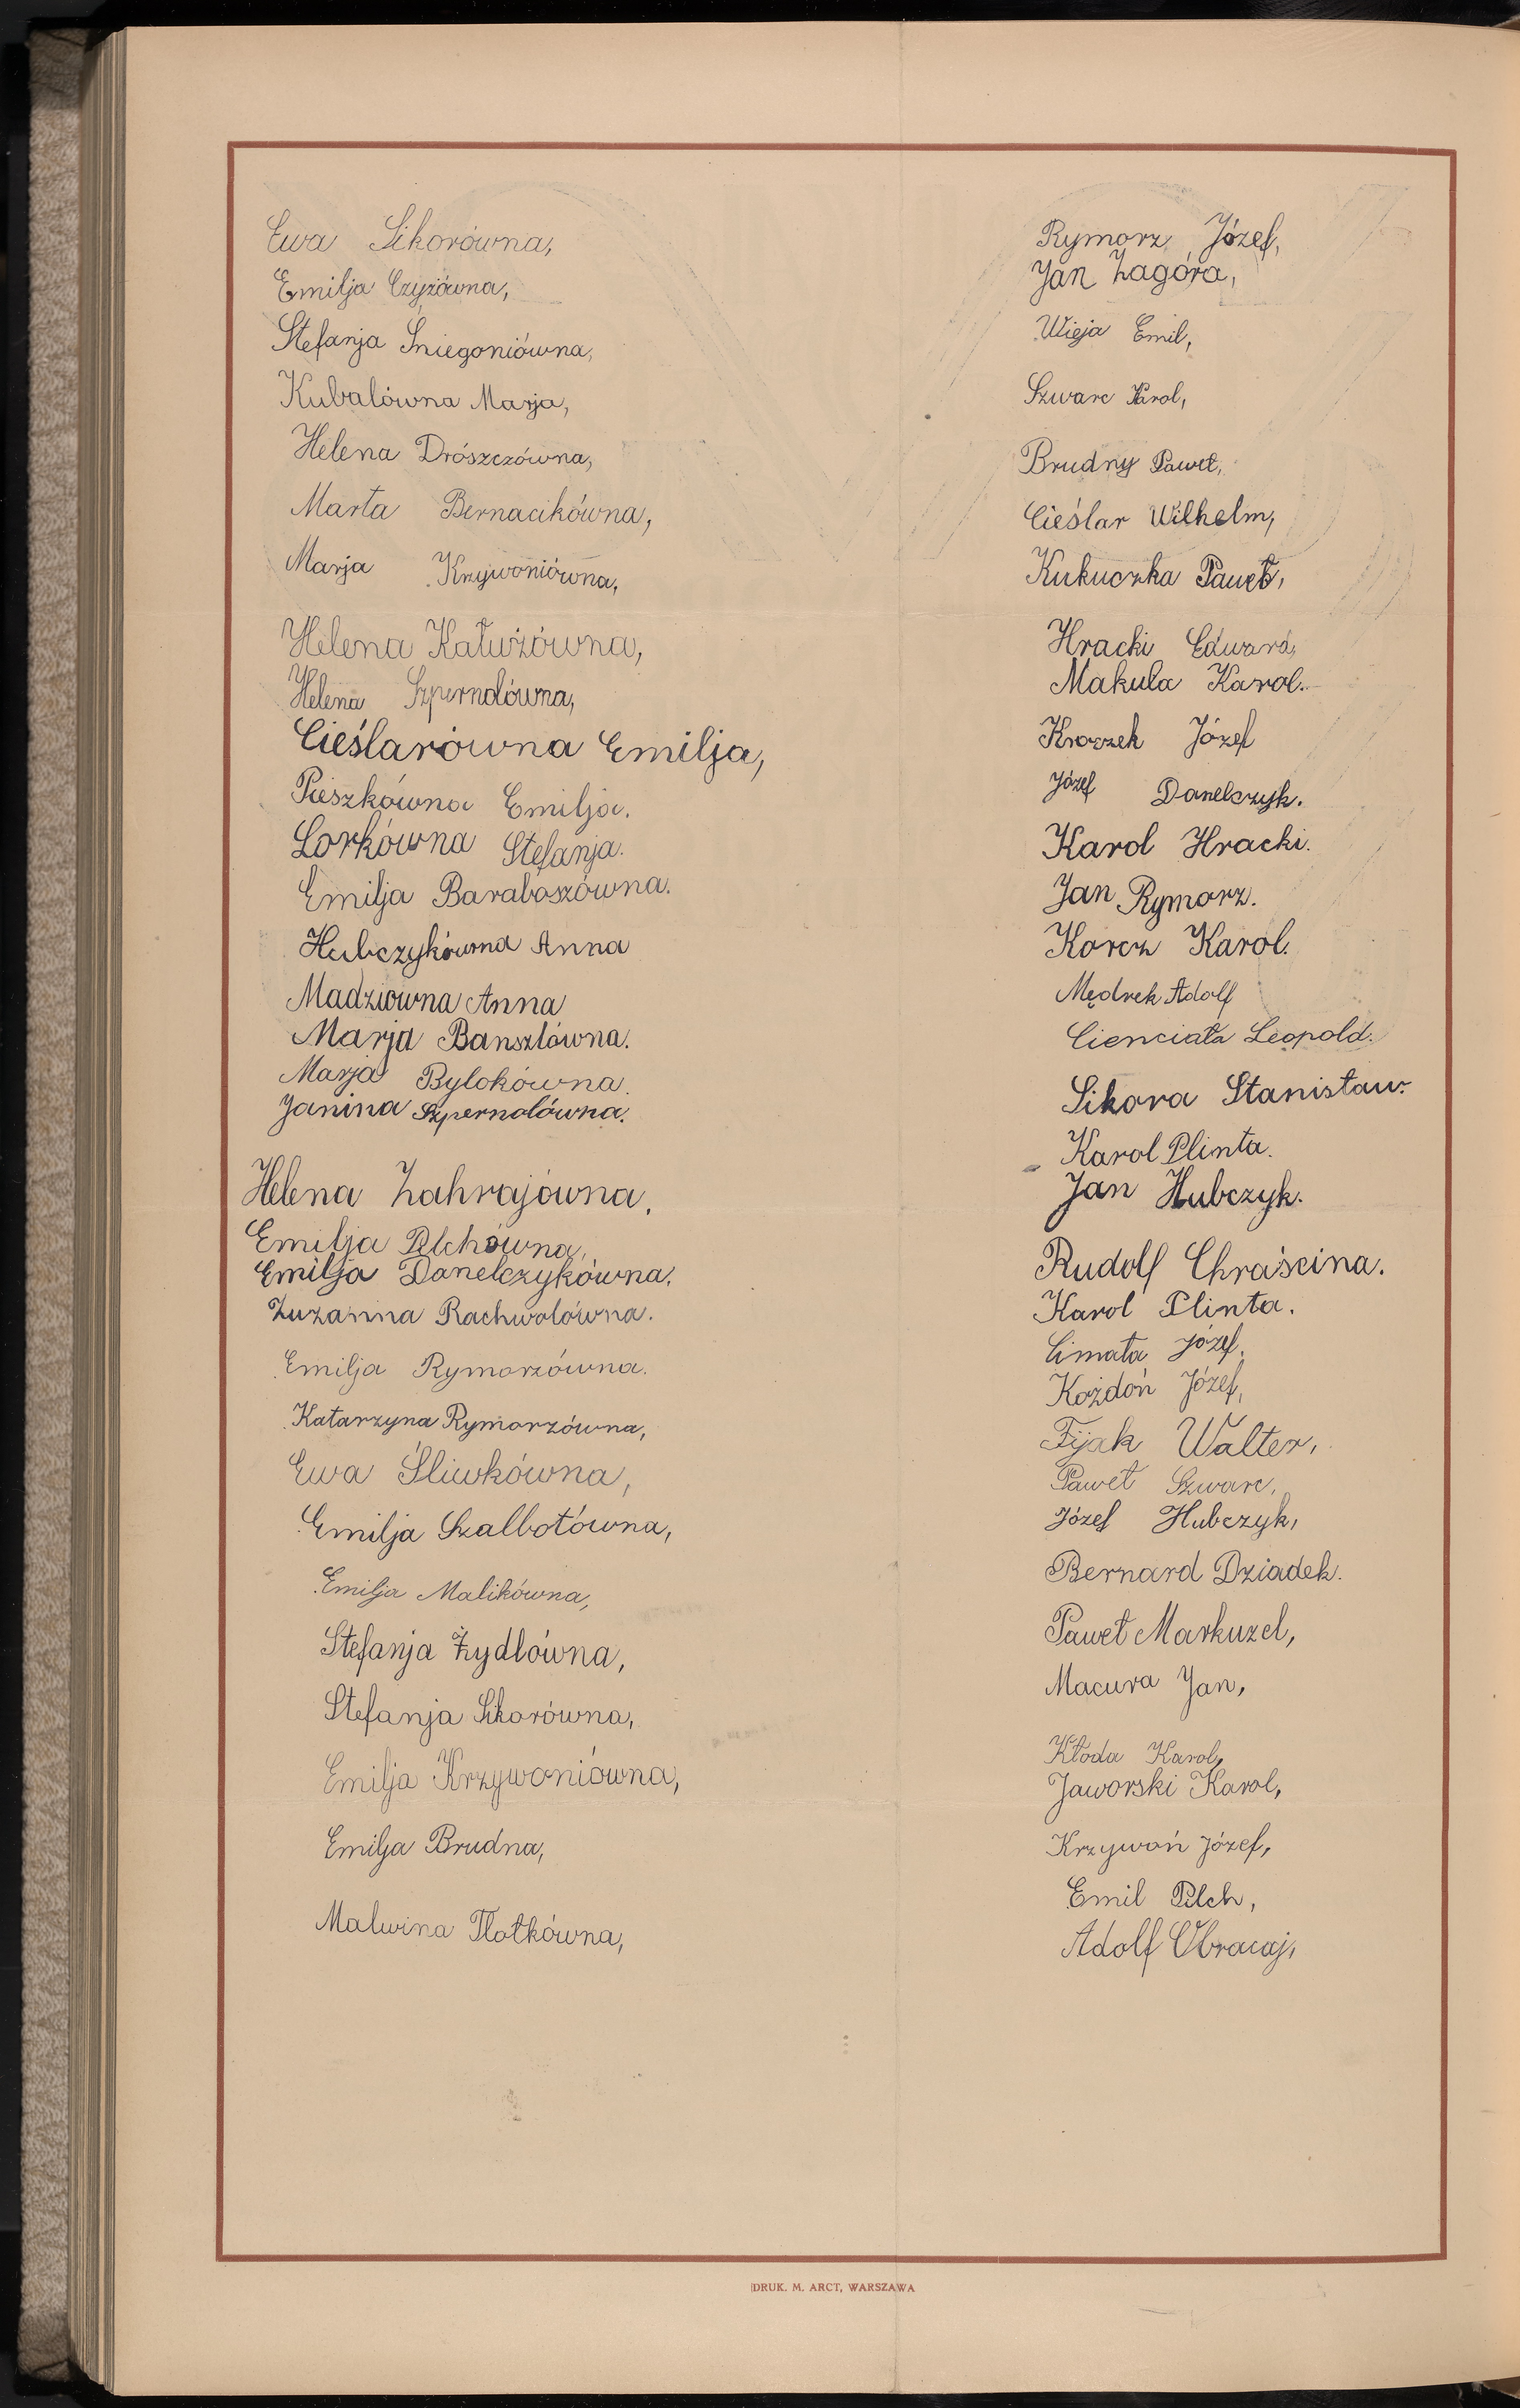 Ewa Sikorówna,
Emilja Czyżówna,
Stefanja Śniegoniówna,
Kubalówna Marja,
Helena Drószczówna,
Marta Bernacikówna,
Marja Krzywoniówna,
Helena Kałużówna,
Helena Szpernolówna,
Cieślarówna Emilja,
Pieszkówna Emilja.
Lorkówna Stefanja.
Emilja Baraboszówna.
Hubczykówna Anna
Madziówna Anna
Marja Banszlówna.
Marja Bylokówna.
Janina Szpernolówna.
Helena Zahrajówna.
Emilja Pilchówna,
Emilja Danelczykówna.
Zuzanna Rachwolówna.
Emilja Rymorzówna.
Katarzyna Rymorzówna,
Ewa Śliwkówna,
Emilja Szalbotówna,
Emilja Malikówna,
Stefanja Żydlówna,
Stefanja Sikorówna,
Emilja Krzywoniówna,
Emilja Brudna,
Malwina Tlotkówna,
Rymorz Józef,
Jan Zagóra,
Wieja Emil,
Szwarc Karol,
Brudny Paweł,
Cieślar Wilhelm,
Kukuczka Paweł,
Hracki Edward,
Makula Karol.
Kroczek Józef
Józef Danelczyk.
Karol Hracki.
Jan Rymorz.
Korcz Karol.
Mędrek Adolf
Cienciała Leopold.
Sikora Stanisław.
Karol Plinta.
Jan Hubczyk.
Rudolf Chraścina.
Karol Plinta.
Cimała Józef.
Kożdoń Józef,
Fijak Walter,
Paweł Szwarc,
Józef Hubczyk,
Bernard Dziadek.
Paweł Markuzel,
Macura Jan,
Kłoda Karol,
Jaworski Karol,
Krzywoń Józef,
Emil Pilch,
Adolf Obracaj,
DRUK. M. ARCT, WARSZAWA